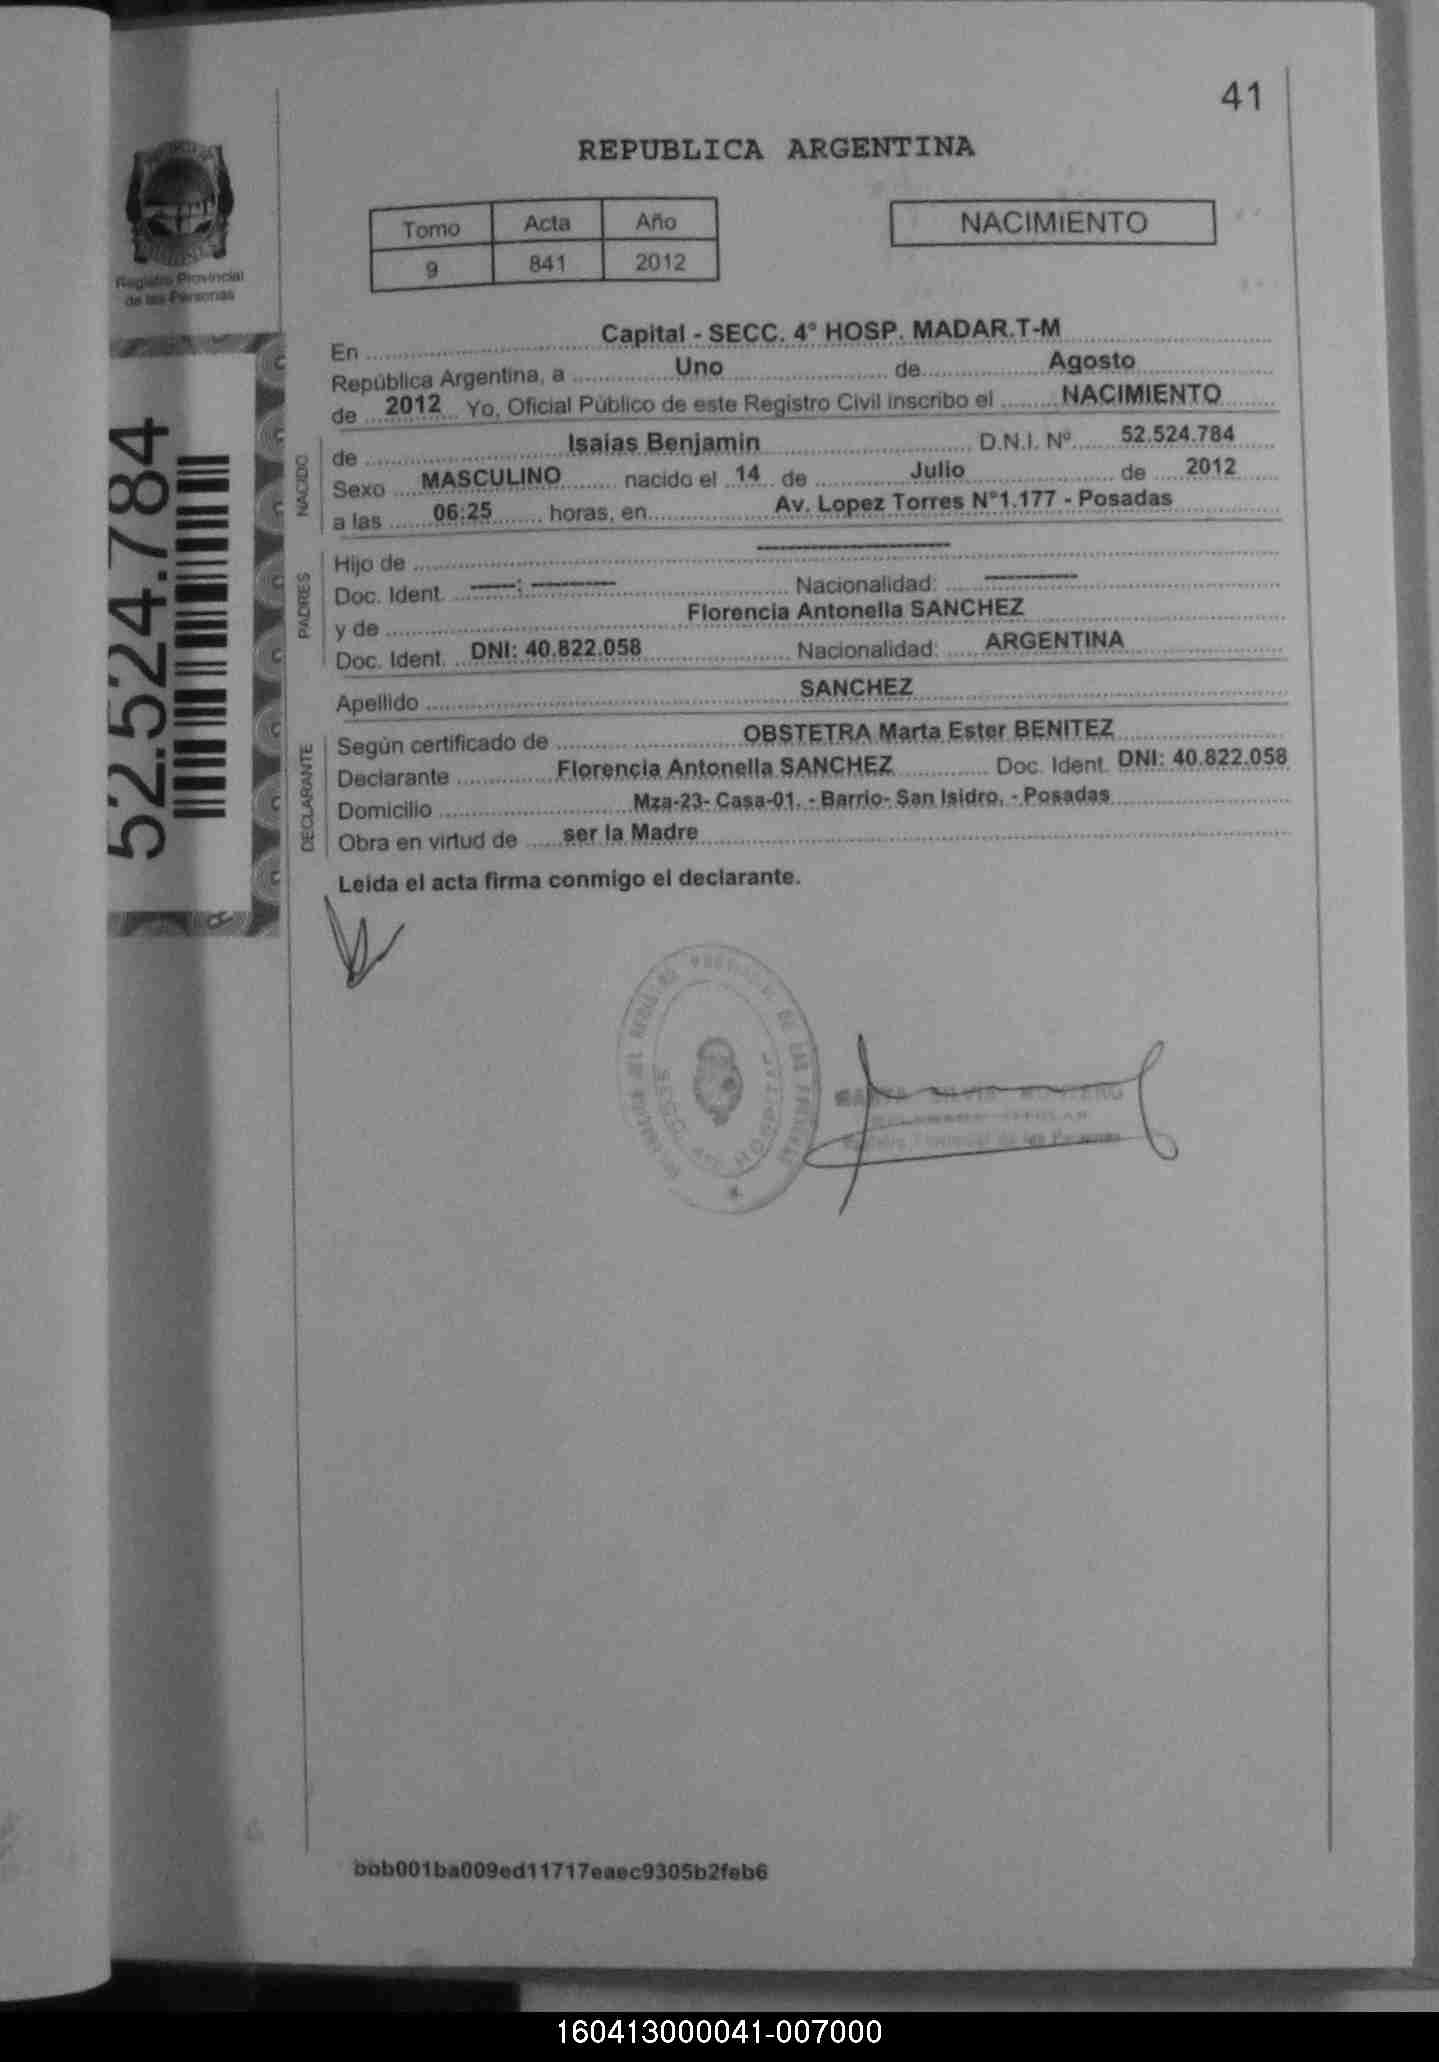 41
REPUBLICA ARGENTINA
Registro Provincial
de las Personas
Tomo Acta Año
9 841 2012
NACIMIENTO
En Capital - SECC. 4° HOSP. MADAR.T-M
República Argentina, a Uno de Agosto
de 2012 Yo, Oficial Público de este Registro Civil inscribo el NACIMIENTO
NACIDO
de Isaias Benjamin D.N.I. Nº 52.524.784
Sexo MASCULINO nacido el 14 de Julio de 2012
a las 06:25 horas, en Av. Lopez Torres N°1.177 - Posadas
PADRES
Hijo de --------------------
Doc. Ident. -----: --------- Nacionalidad: ----------
y de Florencia Antonella SANCHEZ
Doc. Ident. DNI: 40.822.058 Nacionalidad: ARGENTINA
Apellido SANCHEZ
DECLARANTE
Según certificado de OBSTETRA Marta Ester BENITEZ
Declarante Florencia Antonella SANCHEZ Doc. Ident. DNI: 40.822.058
Domicilio Mza-23- Casa-01. - Barrio- San Isidro. - Posadas
Obra en virtud de ser la Madre
Leida el acta firma conmigo el declarante.
52.524.784
SECC. 4ta. HOSPITAL
SILVIA MONTERO
bob001ba009ed11717eaec9305b2feb6
160413000041-007000